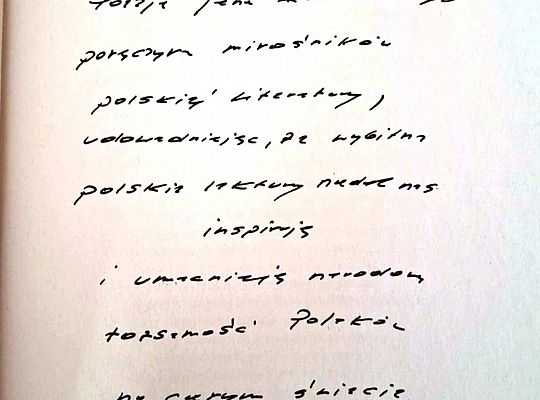 poręczyra miłośników
polskiej literatury,
udowadniając, że wybitne
polskie lektury nadal nas
inspirują
i umacniają narodową
tożsamość Polaków
na całym świecie